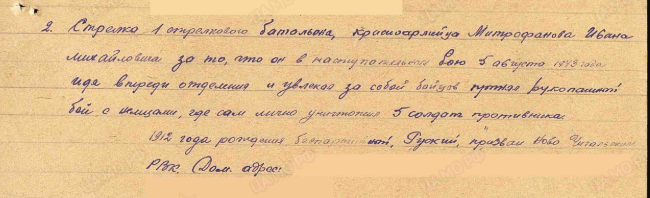 2. Стрелка 1 стрелкового батальона, красноармейца Митрофанова Ивана
Михайловича за то, что он в наступательном бою 5 августа 1943 года
идя впереди отделения и увлекая за собой бойцов путем рукопашной
бой с немцами, где сам лично уничтожил 5 солдат противника.
1912 года рождения беспартийный, Русский, призван Ново
РВК. Дом. адрес: